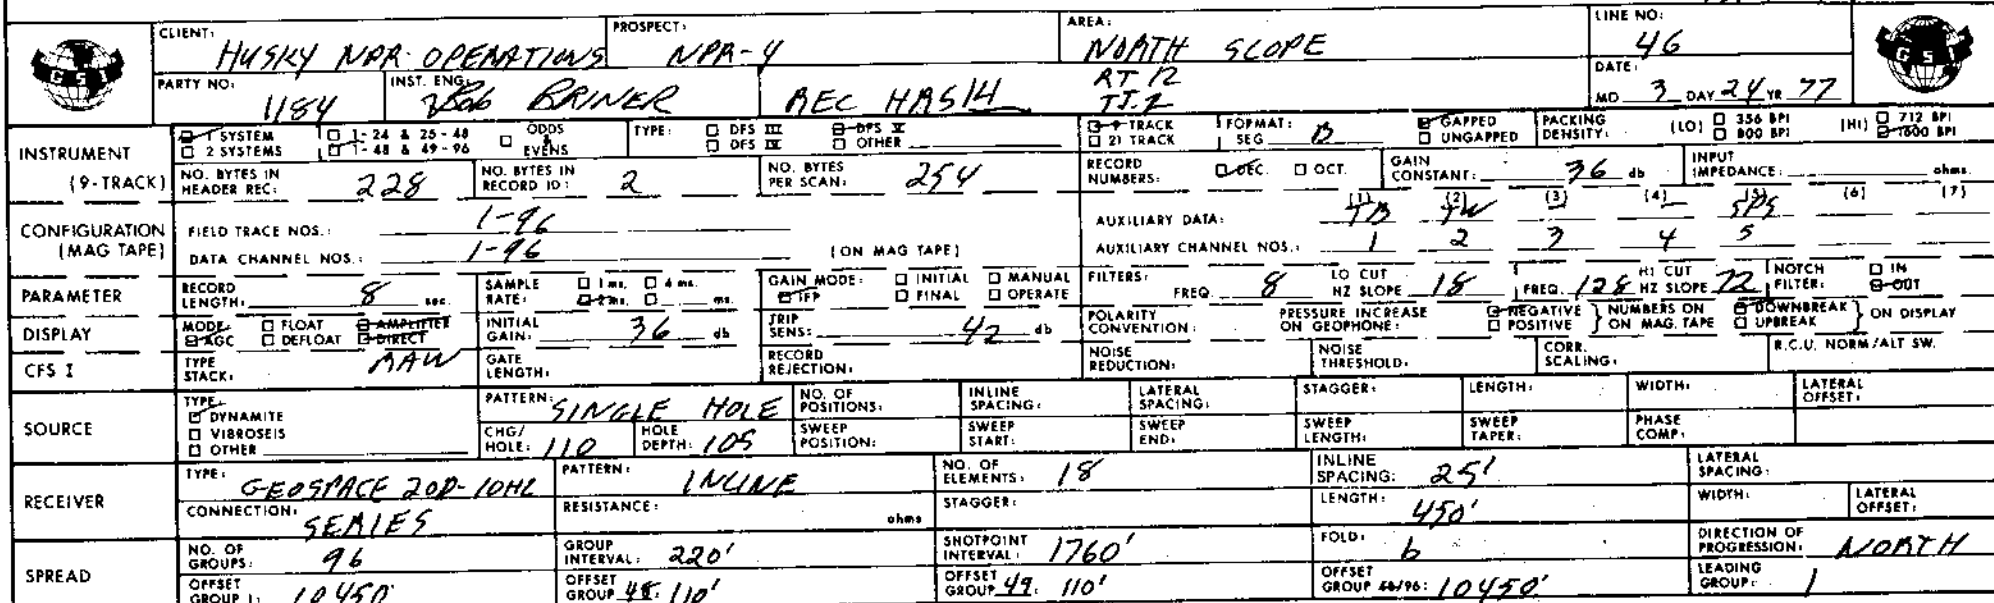 CLIENT: HUSKY NPR OPERATIONS PROSPECT: NPR-4 AREA: NORTH SLOPE LINE NO: 46
GSI
PARTY NO: 1184 INST. ENG. Bob BRINER REC HASH RT 12 DATE: MO 3 DAY 24 YR 77
GSI
INSTRUMENT (9-TRACK) 1 SYSTEM 1-24 & 25-48 ODDS & EVENS TYPE: DFS III DFS V 9 TRACK FORMAT: SEG B GAPPED PACKING DENSITY: (LO) 356 BPI (HI) 712 BPI
2 SYSTEMS 1-48 & 49-96 DFS IV OTHER 21 TRACK UNGAPPED 800 BPI 1600 BPI
NO. BYTES IN HEADER REC: 228 NO. BYTES IN RECORD ID: 2 NO. BYTES PER SCAN: 254 RECORD NUMBERS: DEC. OCT. GAIN CONSTANT: 36 db INPUT IMPEDANCE: ohms
CONFIGURATION (MAG TAPE) FIELD TRACE NOS.: 1-96 AUXILIARY DATA: (1) TB (2) TW (3) (4) (5) SPS (6) (7)
DATA CHANNEL NOS.: 1-96 (ON MAG TAPE) AUXILIARY CHANNEL NOS.: 1 2 3 4 5
PARAMETER RECORD LENGTH: 8 sec. SAMPLE RATE: 1 ms. 4 ms. 2 ms. ms. GAIN MODE: INITIAL MANUAL IFP FINAL OPERATE FILTERS: FREQ. 8 LO CUT HZ SLOPE 18 FREQ. 128 HI CUT HZ SLOPE 72 NOTCH FILTER: IN OUT
DISPLAY MODE FLOAT AMPLIFIER AGC DEFLOAT DIRECT INITIAL GAIN: 36 db TRIP SENS: 42 db POLARITY CONVENTION: PRESSURE INCREASE ON GEOPHONE: NEGATIVE POSITIVE NUMBERS ON MAG. TAPE DOWNBREAK UPBREAK ON DISPLAY
CFS I TYPE STACK: RAW GATE LENGTH: RECORD REJECTION: NOISE REDUCTION: NOISE THRESHOLD: CORR. SCALING: R.C.U. NORM/ALT SW.
SOURCE TYPE: DYNAMITE VIBROSEIS OTHER PATTERN: SINGLE HOLE NO. OF POSITIONS: INLINE SPACING: LATERAL SPACING: STAGGER: LENGTH: WIDTH: LATERAL OFFSET:
CHG/HOLE: 110 HOLE DEPTH: 105 SWEEP POSITION: SWEEP START: SWEEP END: SWEEP LENGTH: SWEEP TAPER: PHASE COMP:
RECEIVER TYPE: GEOSPACE 20D-10HZ PATTERN: INLINE NO. OF ELEMENTS: 18 INLINE SPACING: 25' LATERAL SPACING:
CONNECTION: SERIES RESISTANCE: ohms STAGGER: LENGTH: 450' WIDTH: LATERAL OFFSET:
SPREAD NO. OF GROUPS: 96 GROUP INTERVAL: 220' SHOTPOINT INTERVAL: 1760' FOLD: 6 DIRECTION OF PROGRESSION: NORTH
OFFSET GROUP 1: 10450' OFFSET GROUP 48: 110' OFFSET GROUP 49: 110' OFFSET GROUP 48/96: 10450' LEADING GROUP: 1